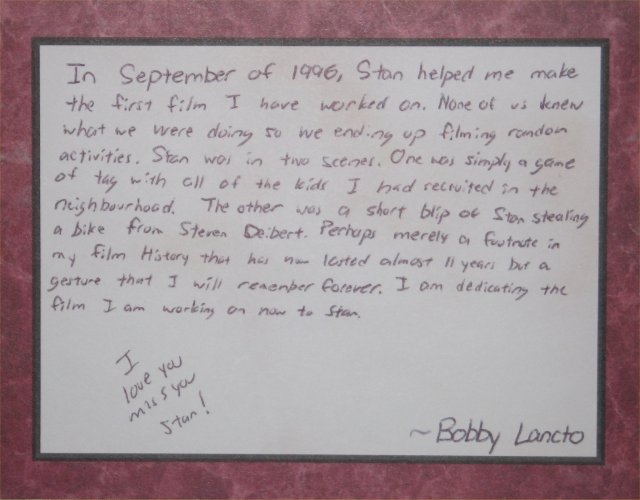 In September of 1996, Stan helped me make
the first film I have worked on. None of us knew
what we were doing so we ending up filming random
activities. Stan was in two scenes. One was simply a game
of tag with all of the kids I had recruited in the
neighbourhood. The other was a short blip of Stan stealing
a bike from Steven Deibert. Perhaps merely a footnote in
my film History that has now lasted almost 11 years but a
gesture that I will remember forever. I am dedicating the
film I am working on now to Stan.
I
love you
miss you
Stan!
~Bobby Lancto